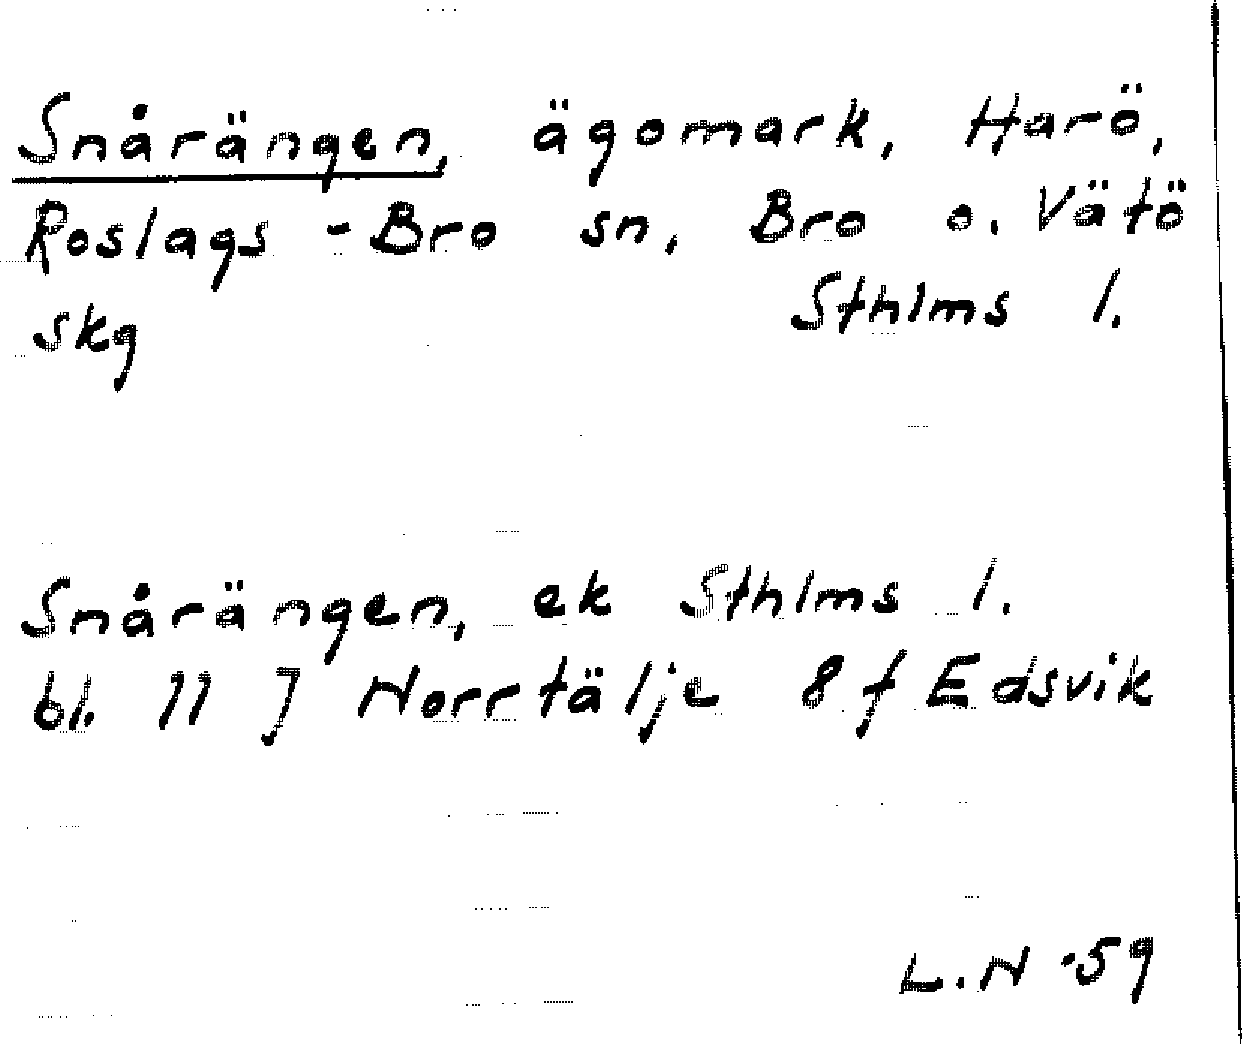 Snårängen, ägomark, Harö,
Roslags-Bro sn, Bro o. Vätö
skg Sthlms l.
Snårängen, ek Sthlms l.
bl. 11 J Norrtälje 8 f Edsvik
L.N -59